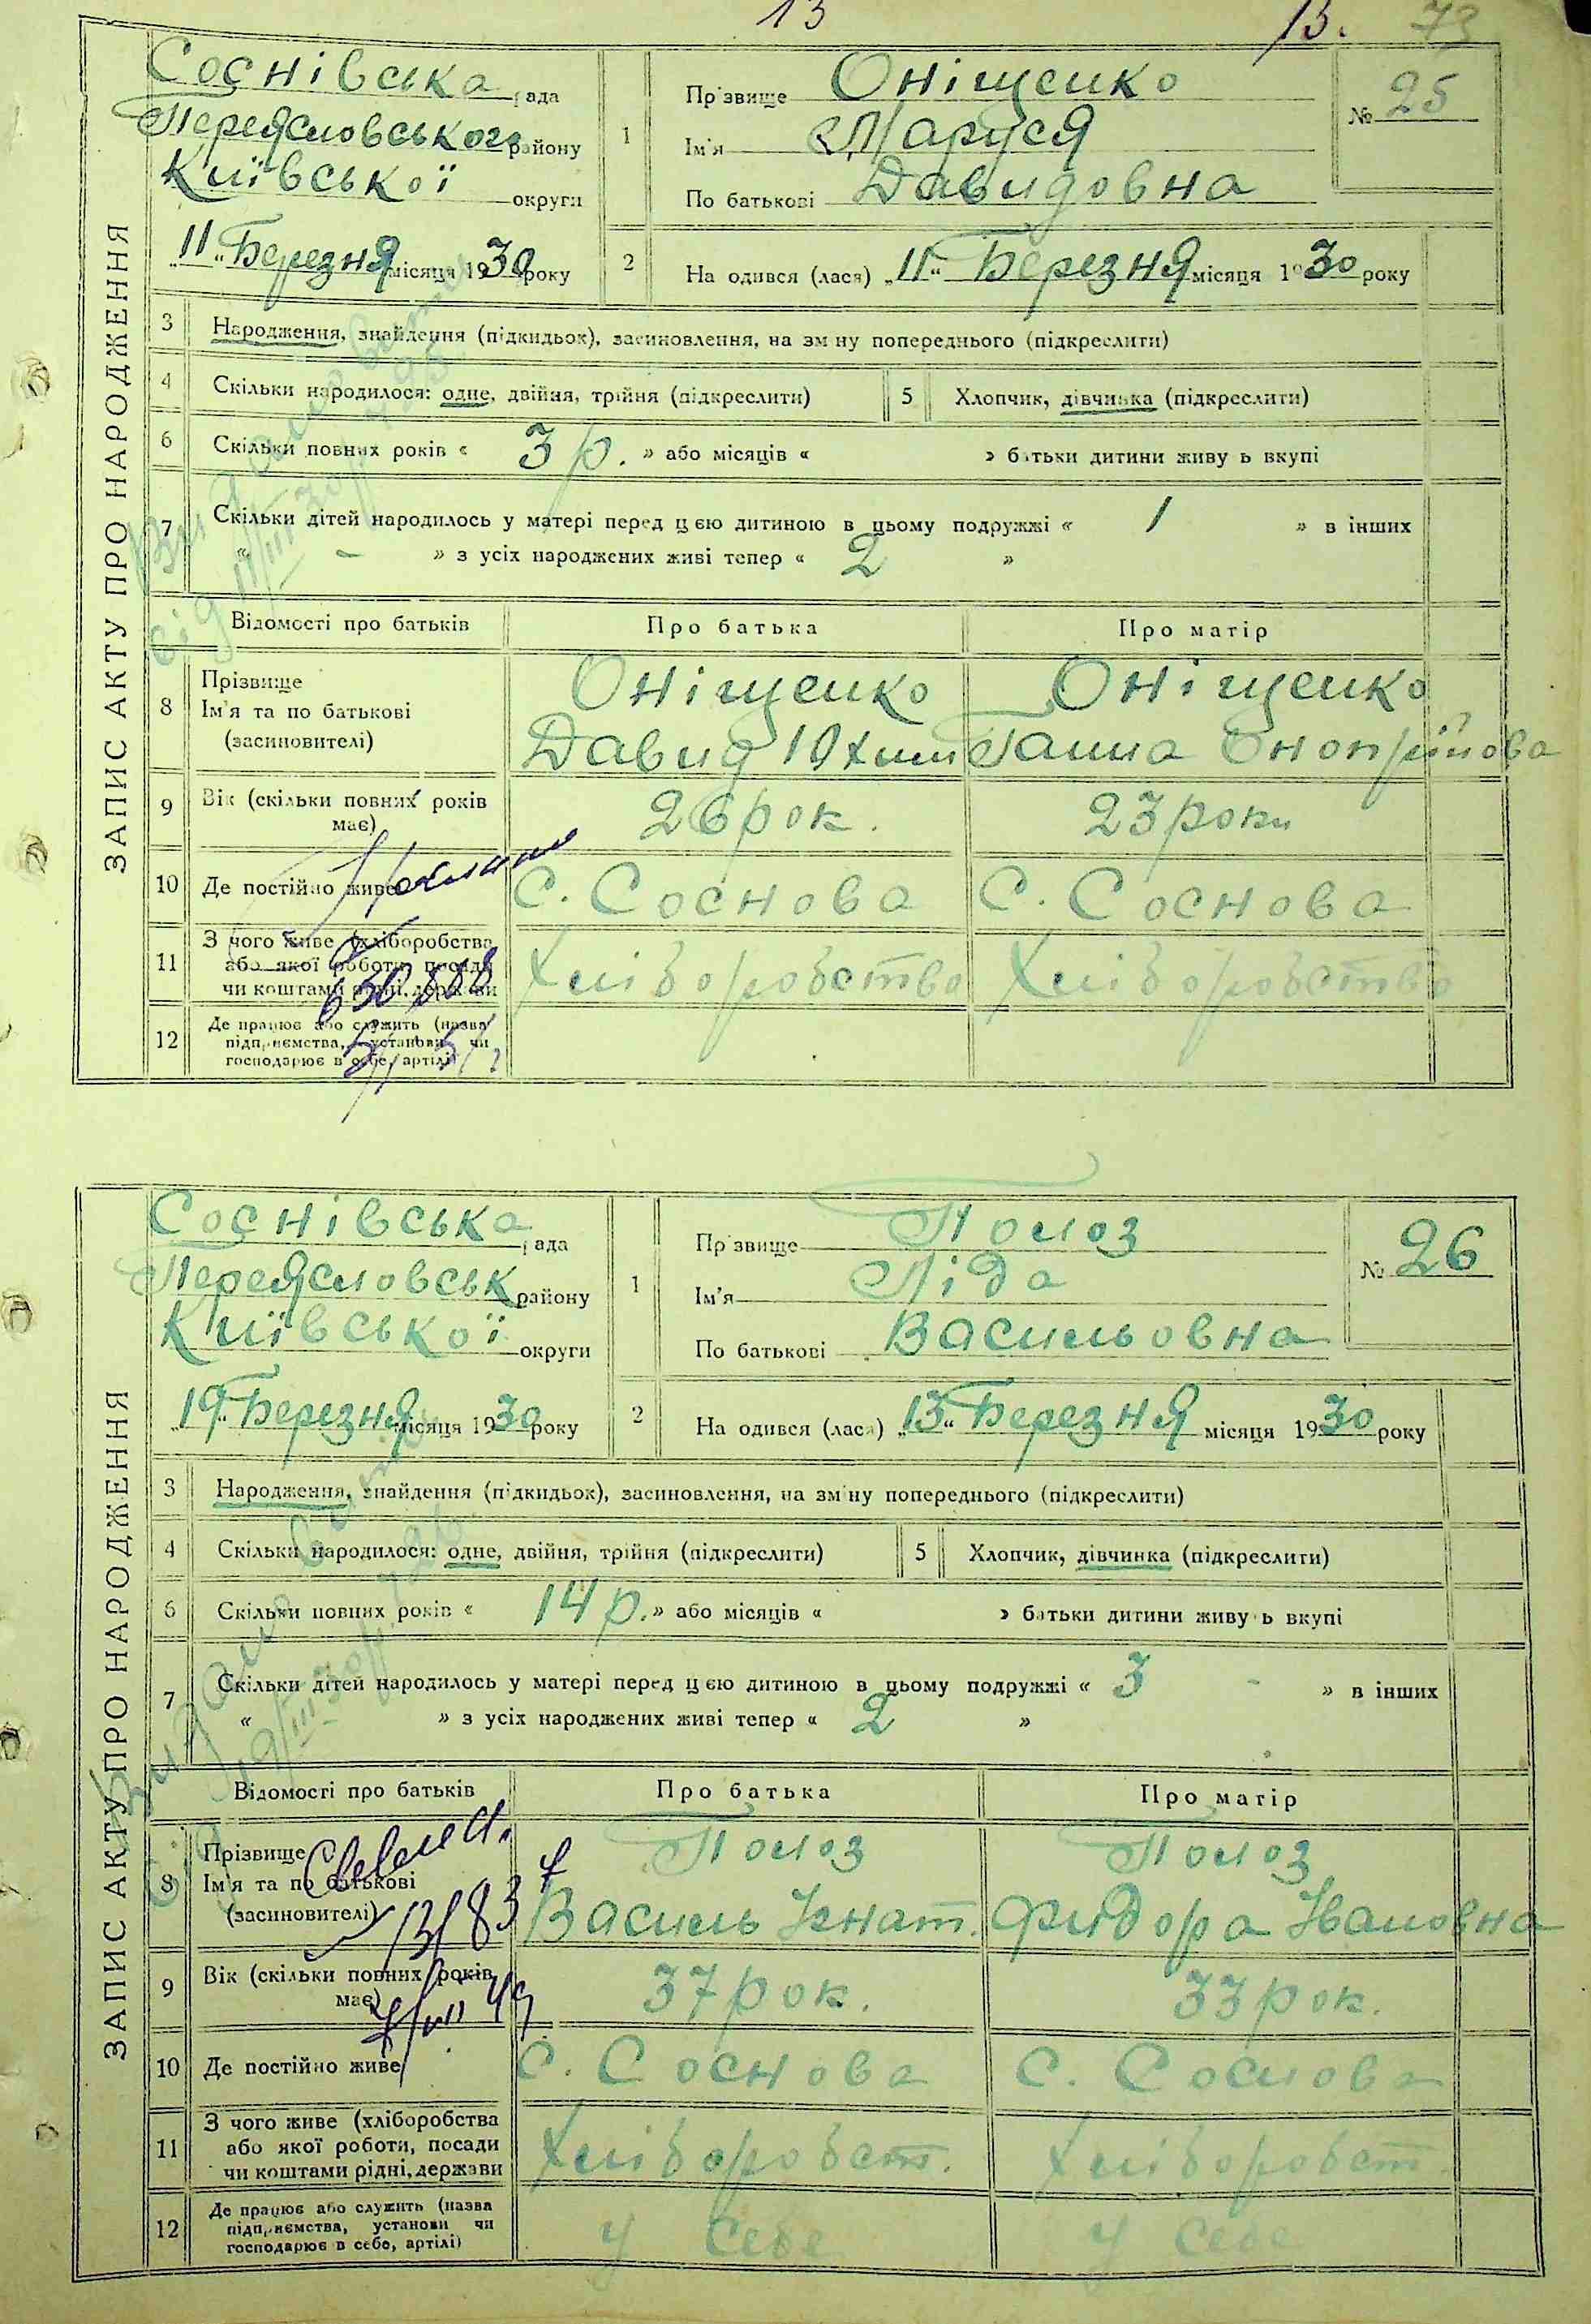 13 13. 73
ЗАПИС АКТУ ПРО НАРОДЖЕННЯ
Соснівська рада
Переясловського району
Київської округи
„11“ Березня місяця 1930 року
1
Прізвище Оніщенко
Ім'я Маруся
По батькові Давидовна
№ 25
2 На одився (лася) „11“ Березня місяця 1930 року
3 Народження, знайдення (підкидьок), засиновлення, на зм ну попереднього (підкреслити)
4 Скільки народилося: одне, двійня, трійня (підкреслити) 5 Хлопчик, дівчинка (підкреслити)
6 Скільки повних років « 3 р. » або місяців « » батьки дитини живу ь вкупі
7 Скільки дітей народилось у матері перед ц єю дитиною в цьому подружжі « 1 » в інших
« - » з усіх народжених живі тепер « 2 »
Відомості про батьків Про батька Про матір
8 Прізвище
Ім'я та по батькові
(засиновителі)
Оніщенко Оніщенко
Давид Юхим Ганна Онопрійова
9 Вік (скільки повних років
має)
26 рок. 23 роки
10 Де постійно живе с. Соснова с. Соснова
11 З чого живе (хліборобства
або якої роботи, посади
чи коштами рідні, держави
Хліборобство Хліборобство
12 Де працює або служить (назва
підприємства, установи чи
господарює в себе, артілі)
ЗАПИС АКТУ ПРО НАРОДЖЕННЯ
Соснівська рада
Переясловськ району
Київської округи
„19“ Березня місяця 1930 року
1
Прізвище Полоз
Ім'я Ліда
По батькові Васильовна
№ 26
2 На одився (лася) „13“ Березня місяця 1930 року
3 Народження, знайдення (підкидьок), засиновлення, на зм ну попереднього (підкреслити)
4 Скільки народилося: одне, двійня, трійня (підкреслити) 5 Хлопчик, дівчинка (підкреслити)
6 Скільки повних років « 14 р. » або місяців « » батьки дитини живу ь вкупі
7 Скільки дітей народилось у матері перед ц єю дитиною в цьому подружжі « 3 - » в інших
« » з усіх народжених живі тепер « 2 »
Відомості про батьків Про батька Про матір
8 Прізвище
Ім'я та по батькові
(засиновителі)
Полоз Полоз
Василь Ігнат. Фидора Івановна
9 Вік (скільки повних років
має)
37 рок. 33 рок.
10 Де постійно живе с. Соснова с. Соснова
11 З чого живе (хліборобства
або якої роботи, посади
чи коштами рідні, держави
Хліборобст. Хліборобст.
12 Де працює або служить (назва
підприємства, установи чи
господарює в себе, артілі)
у себе у себе